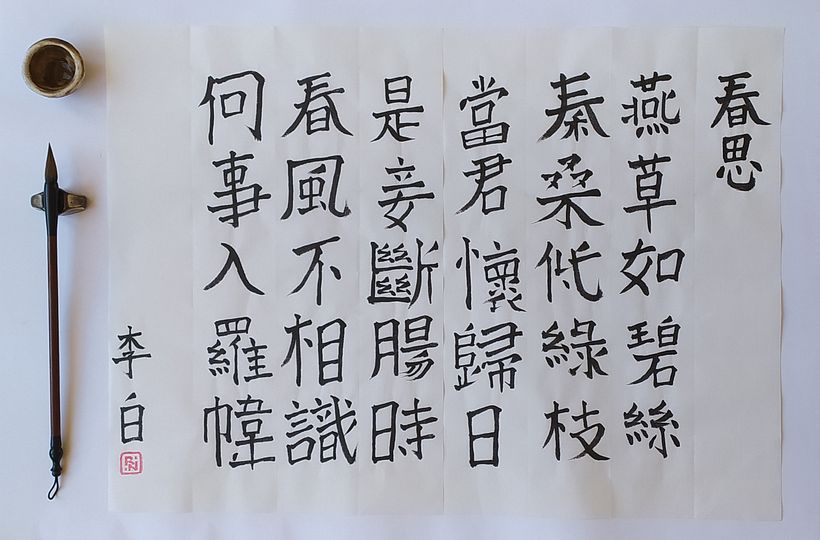 春思
燕草如碧絲
秦桑低綠枝
當君懷歸日
是妾斷腸時
春風不相識
何事入羅幃
李白